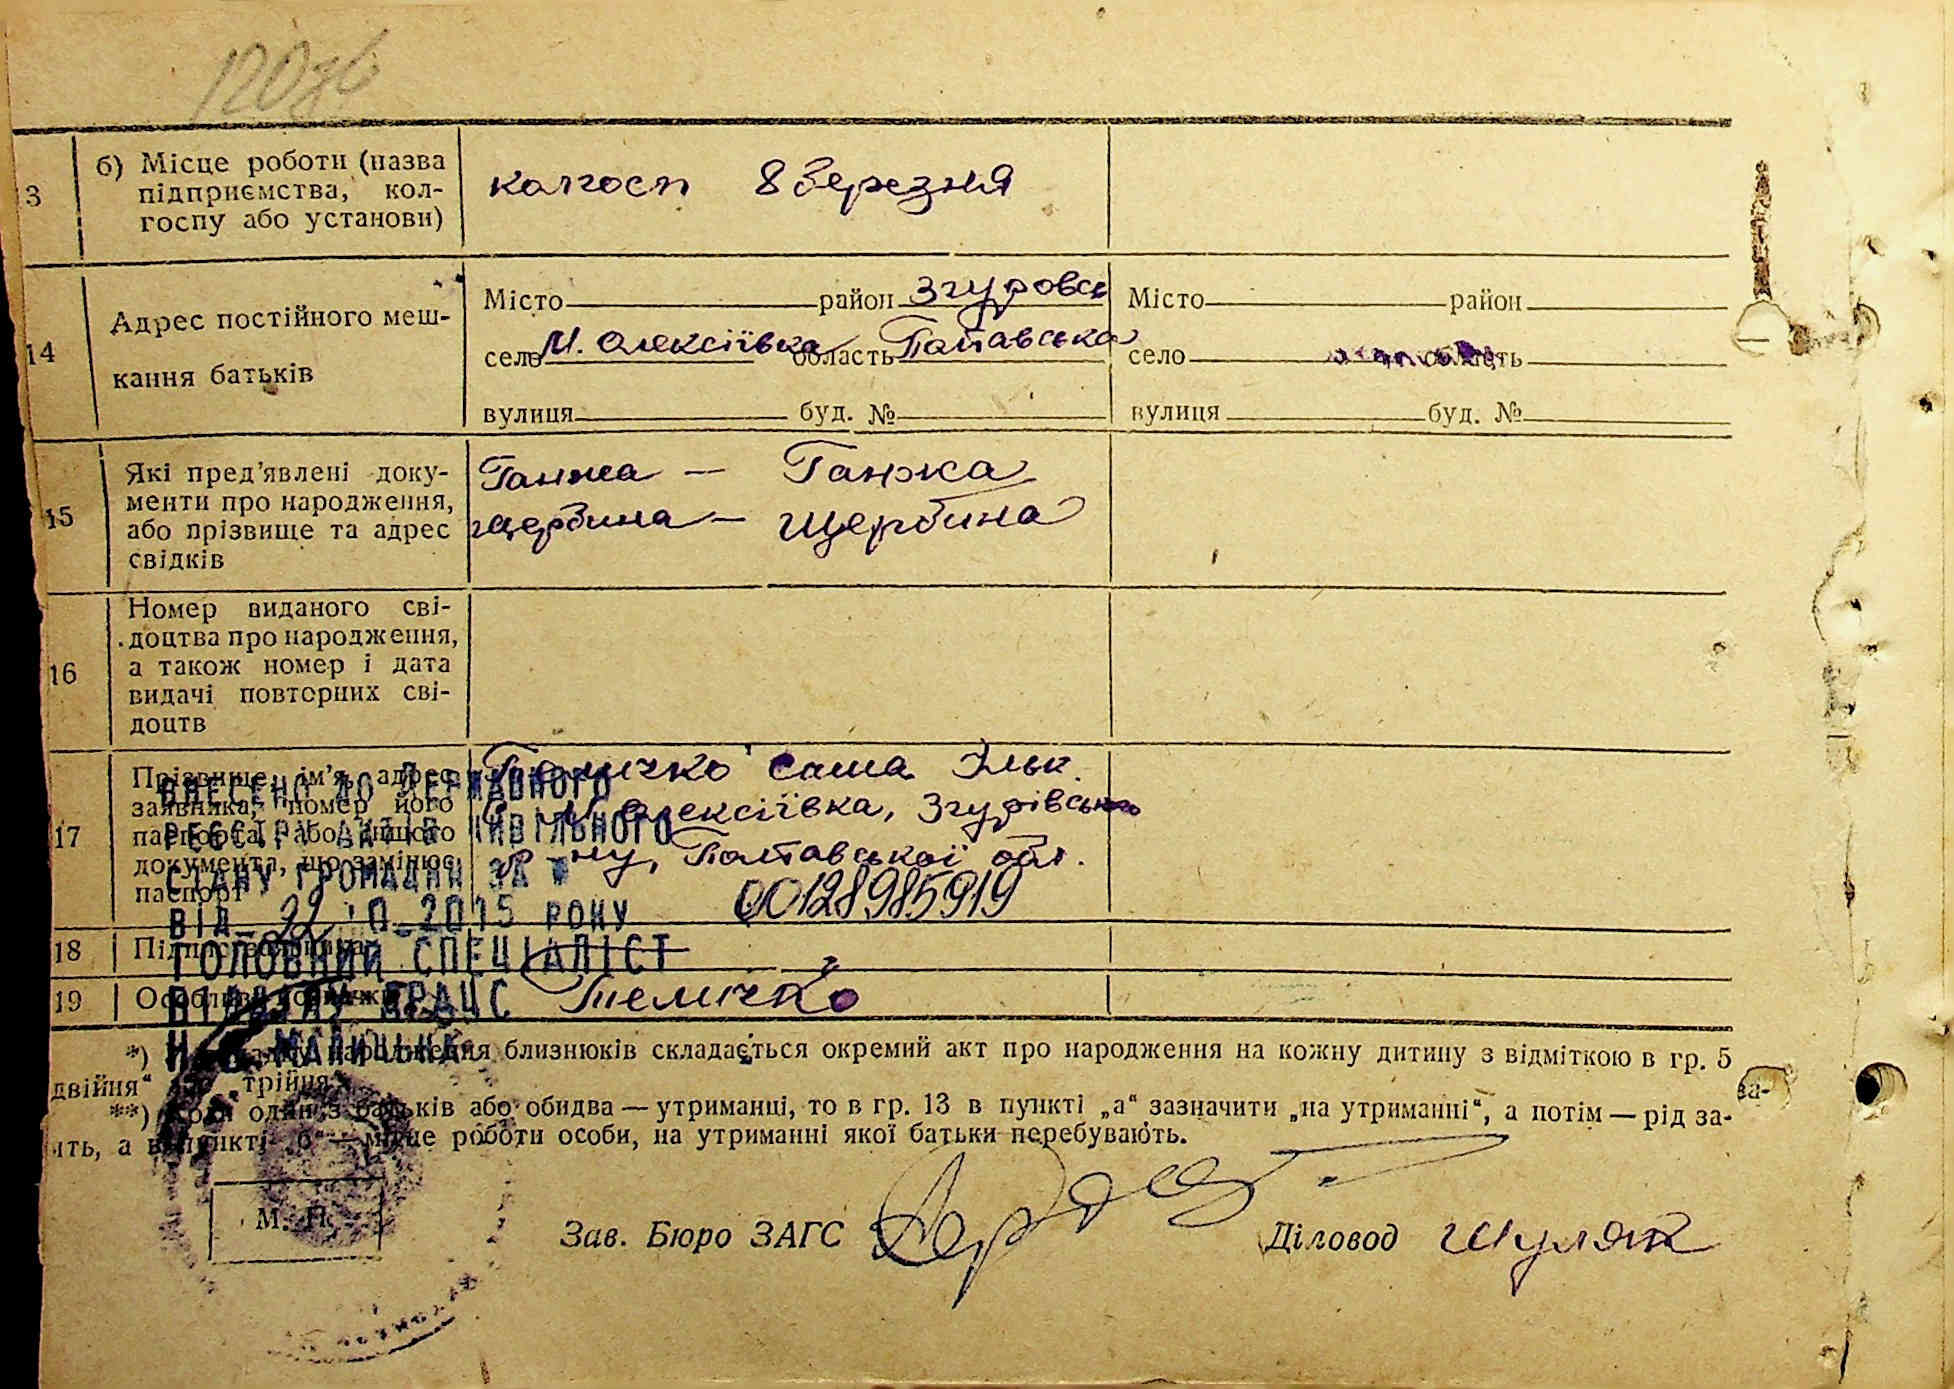 3
б) Місце роботи (назва
підприємства, кол-
госпу або установи)
колгосп 8 Березня
14
Адрес постійного меш-
кання батьків
Місто район Згуровсь
село М. Олексіївка область Полтавська
вулиця буд. №
Місто район
село область
вулиця буд. №
15
Які пред'явлені доку-
менти про народження,
або прізвище та адрес
свідків
Ганжа — Ганжа
Щербина — Щербина
16
Номер виданого сві-
доцтва про народження,
а також номер і дата
видачі повторних сві-
доцтв
17
Прізвище, ім'я, адрес
заявника, номер його
паспорта або іншого
документа, що замінює
паспорт
Теличко Саша Ільк.
с. М. Олексіївка, Згурівського
р-ну, Полтавської обл.
ВНЕСЕНО ДО ДЕРЖАВНОГО
РЕЄСТРУ АКТІВ ЦИВІЛЬНОГО
СТАНУ ГРОМАДЯН ЗА №
00128985919
ВІД 22 2015 РОКУ
ГОЛОВНИЙ СПЕЦІАЛІСТ
ВІДДІЛУ ДРАЦС
18
Підпис заявника
19
Особливі
Теличко
*) народження близнюків складається окремий акт про народження на кожну дитину з відміткою в гр. 5
двійня" трійня"
**) Коли один з батьків або обидва — утриманці, то в гр. 13 в пункті „а" зазначити „на утриманні", а потім — рід за-
ять, а в пункті „б" — місце роботи особи, на утриманні якої батьки перебувають.
М. П.
Зав. Бюро ЗАГС
Діловод Шуляк